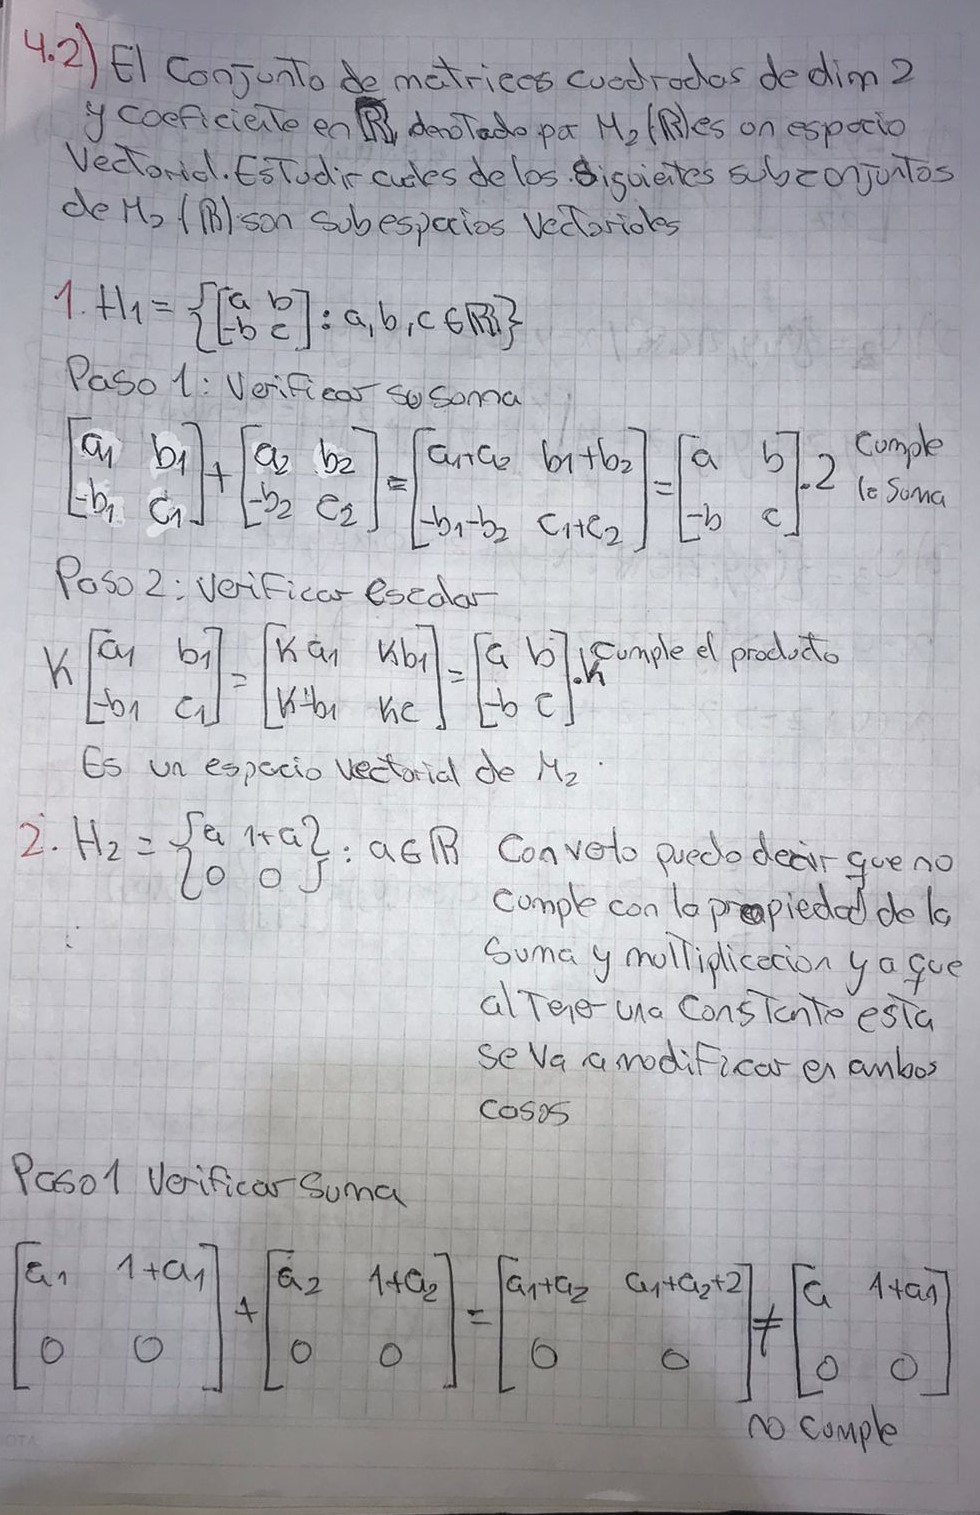 4.2) El Conjunto de matrices cuadradas de dim 2
y coeficiente en ℝ, denotado por M₂(ℝ) es un espacio
Vectorial. Estudiar cuales de los siguientes subconjuntos
de M₂(ℝ) son subespacios Vectoriales
1. H₁ = {[a b; -b c] : a, b, c ∈ ℝ}
Paso 1: Verificar su soma
[a₁ b₁; -b₁ c₁] + [a₂ b₂; -b₂ c₂] = [a₁+a₂ b₁+b₂; -b₁-b₂ c₁+c₂] = [a b; -b c].2 Cumple la Suma
Paso 2: Verificar escalar
K[a₁ b₁; -b₁ c₁] = [Ka₁ Kb₁; K-b₁ Kc] = [a b; -b c].K Cumple el producto
Es un espacio vectorial de M₂.
2. H₂ = {a 1+a; 0 0} : a ∈ ℝ Con verlo puedo decir que no
cumple con la propiedad de la
Suma y multiplicacion ya que
al Tener una Constante esta
se Va a modificar en ambos
casos
Paso 1 Verificar Suma
[a₁ 1+a₁; 0 0] + [a₂ 1+a₂; 0 0] = [a₁+a₂ a₁+a₂+2; 0 0] ≠ [a 1+a₁; 0 0]
no cumple